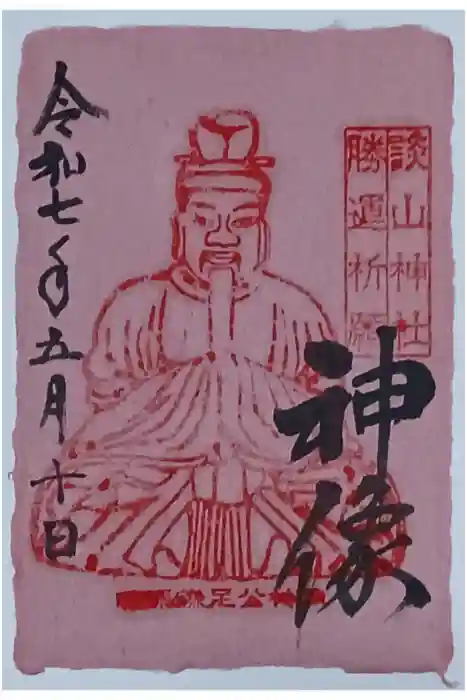 談山神社
勝運祈願
神像
令和七年五月十日